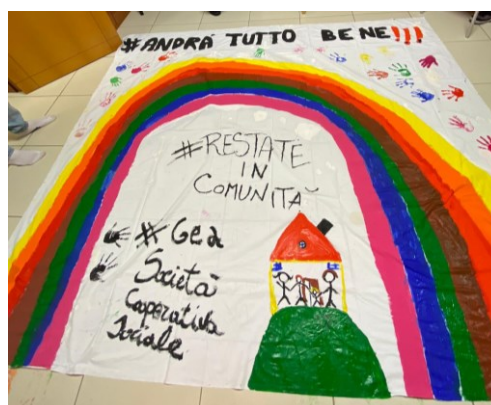 #ANDRÁ TUTTO BENE!!!
#RESTATE
IN
COMUNITÀ
#Gea
Società
Cooperativa
Sociale